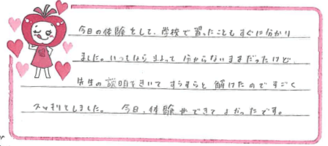 今日の体験をして、学校で習ったこともすぐに分かり
ました。いつもならまよって分からないままだったけど
先生の説明をきいてすらすらと解けたのですごく
スッキリとしました。今日、体験ができてよかったです。